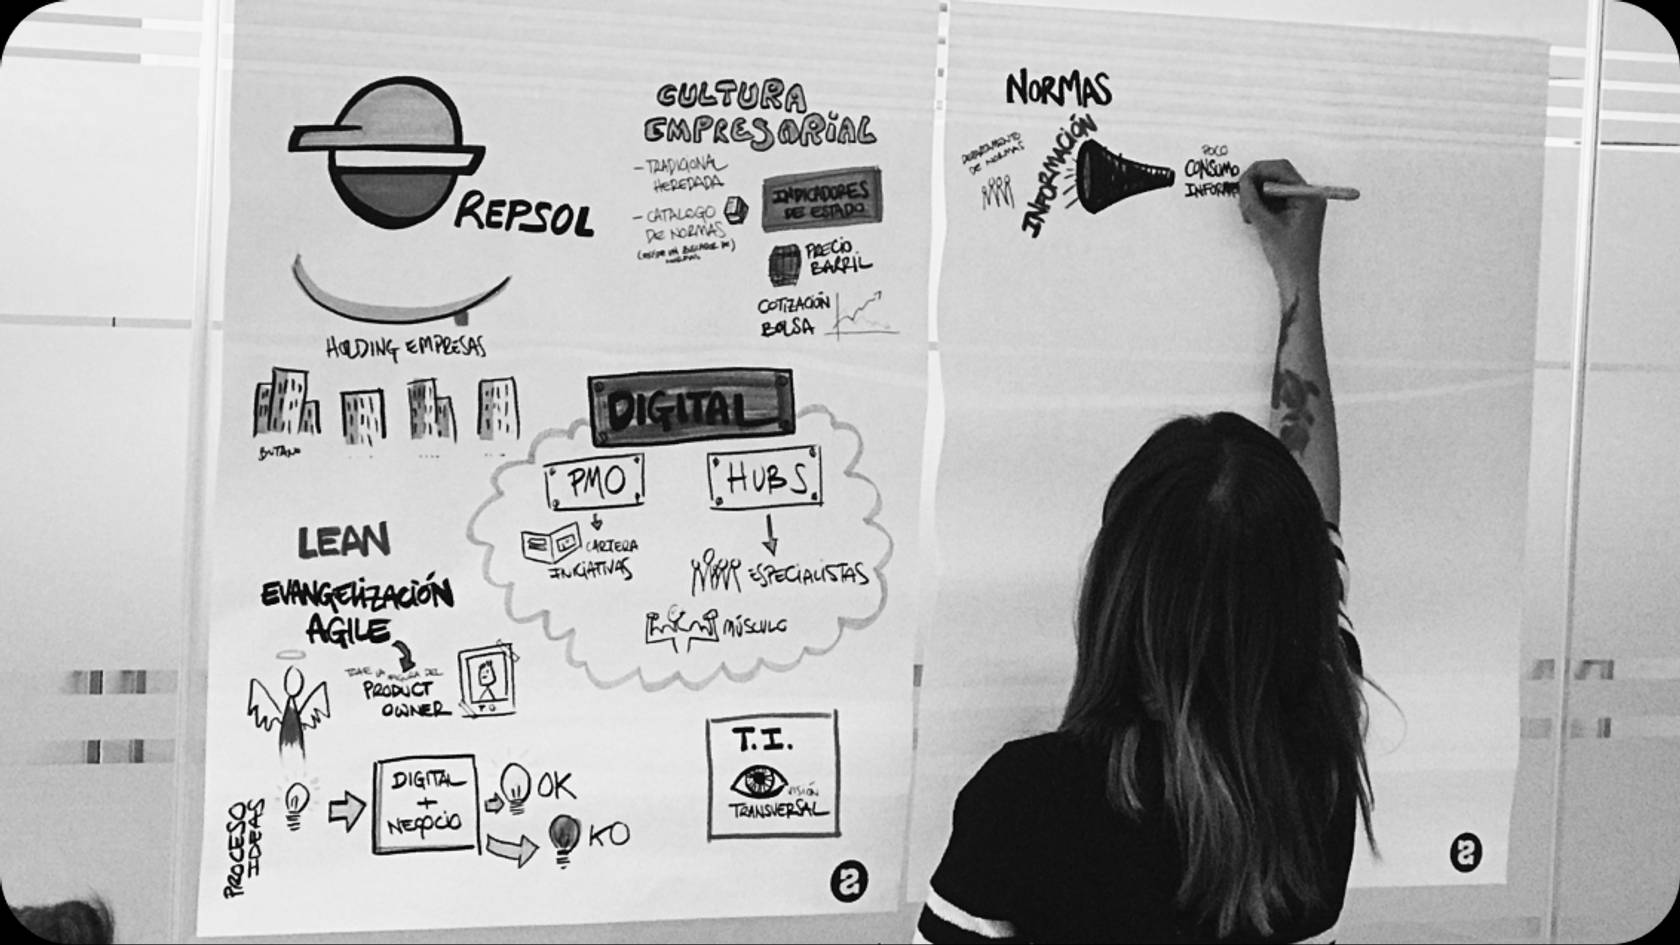 REPSOL
HOLDING EMPRESAS
BUTANO
CULTURA
EMPRESARIAL
- TRADICIONAL
HEREDADA
- CATALOGO
DE NORMAS
INDICADORES
DE ESTADO
PRECIO
BARRIL
COTIZACIÓN
BOLSA
DIGITAL
PMO
CARTERA
INICIATIVAS
HUBS
ESPECIALISTAS
MÚSCULO
LEAN
EVANGELIZACIÓN
AGILE
TRAE LA FIGURA DEL
PRODUCT
OWNER
P.O
PROCESO
IDEAS
DIGITAL
+
NEGOCIO
OK
KO
T.I.
VISIÓN
TRANSVERSAL
NORMAS
DEPARTAMENTO
DE NORMAS
INFORMACIÓN
POCO
CONSUMO